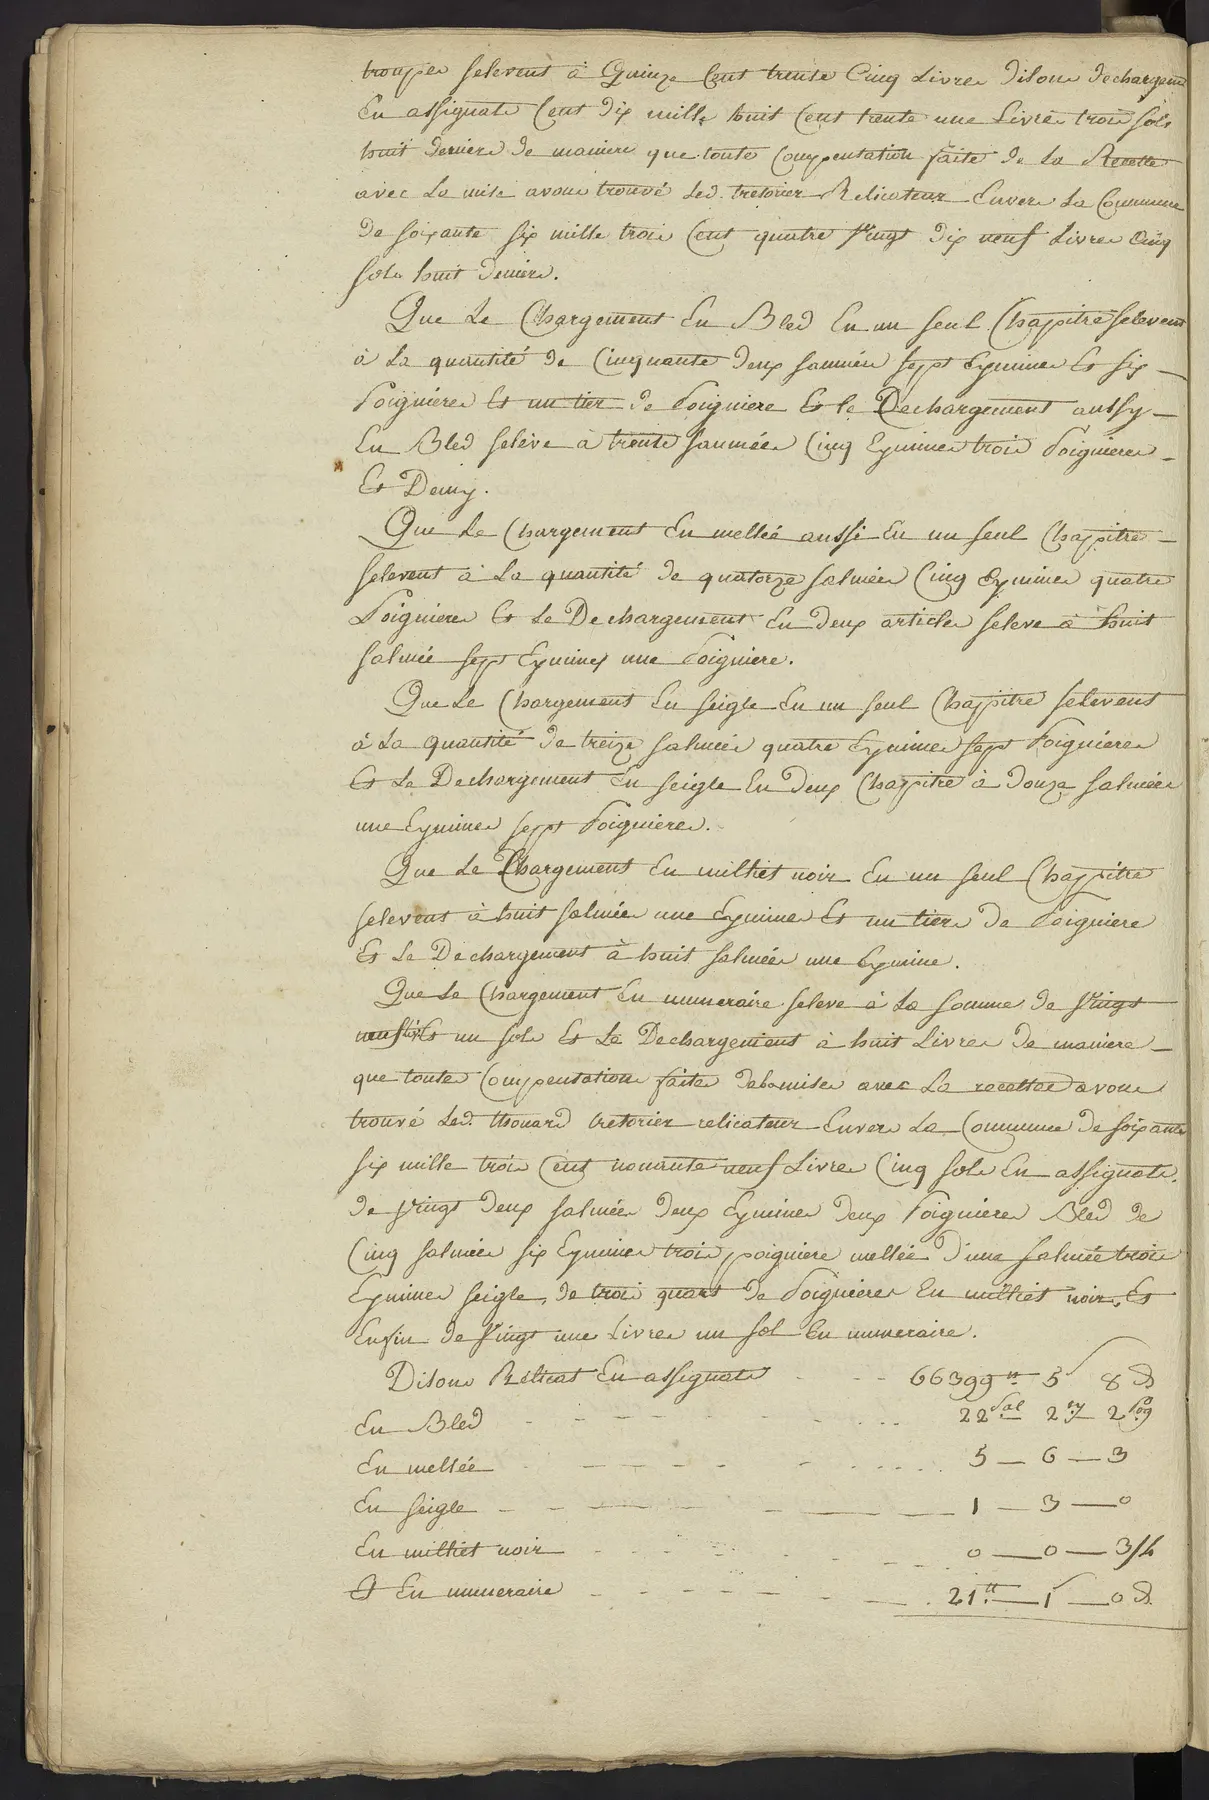 troupes selevent à Quinze Cent trente Cinq Livres disons dechargement
En assignats Cent dix mille huit Cent trente une Livres trois sols
huit deniers de maniere que toute Compensation faite de La Recette
avec La mise avons trouvé Led. tresorier Relicateur Envers La Commune
de soixante six mille trois Cent quatre vingt dix neuf Livres Cinq
sols huit deniers.
Que Le Chargement En Bled En un seul Chapitre selevent
à La quantité de Cinquante deux saumées sept Eymines Et six
Poignieres Et un tier de Poigniere Et le Dechargement aussy
En Bled selève à trente saumées Cinq Eymines trois Poignieres
Et Demy.
Que Le Chargement En mellée aussi En un seul Chapitre
selevent à La quantité de quatorze salmées Cinq Eymines quatre
Poignieres Et Le Dechargement En deux articles seleve à huit
salmée sept Eymines une Poigniere.
Que Le Chargement En seigle En un seul Chapitre selevent
à La quantité de treize salmées quatre Eymines sept Poignieres
Et Le Dechargement En seigle En deux Chapitre à douze salmées
une Eymines sept Poignieres.
Que Le Chargement En milliet noir En un seul Chapitre
selevent à huit salmées une Eymines Et un tiers de Poigniere
Et Le Dechargement à huit salmées une Eymine.
Que Le Chargement En numeraire seleve à La somme de vingt
neuf Et un sols Et Le Dechargement à huit Livres de maniere
que toutes Compensations faites de la mise avec La recette avons
trouvé Led. thouard tresorier relicateur Envers La Commune de soixante
six mille trois Cent nonante neuf Livres Cinq sols En assignats.
de vingt deux salmées deux Eymines deux Poignieres Bled de
Cinq salmées six Eymines trois poigniere mellée d'une salmée trois
Eymines seigle, de trois quart de Poignieres En milliet noir, Et
Enfin de vingt une Livres un sol En numeraire.
Disons Relicat En assignats - - - 66399tt 5s 8d
En Bled - - - 22 sal 2 ey 2 Pog
En mellée - - - 5 — 6 — 3
En seigle - - - 1 — 3 — 0
En milliet noir - - - 0 — 0 — 3/4
Et En numeraire - - - 21tt — 1s — 0d